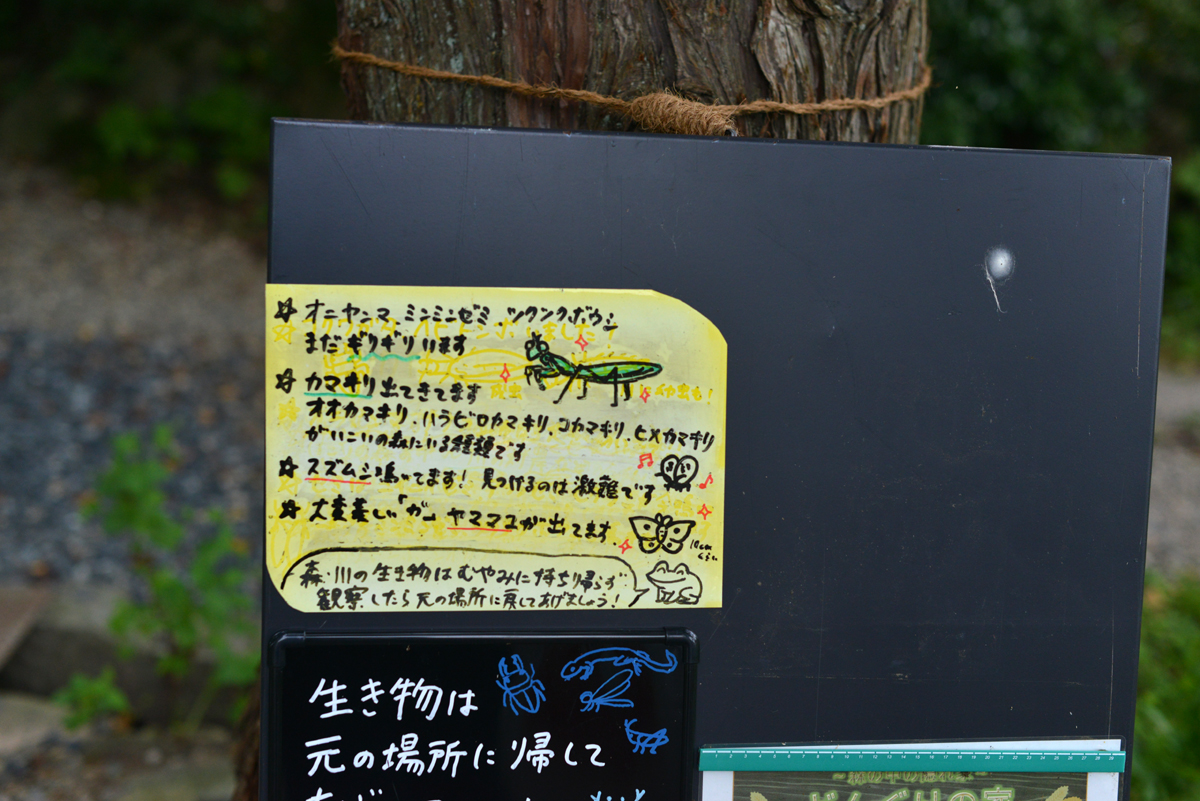 ☆ オニヤンマ、ミンミンゼミ、ツクツクボウシ
まだギリギリいます
☆ カマキリ出てきてます
オオカマキリ、ハラビロカマキリ、コカマキリ、ヒメカマキリ
がいこいの森にいる種類です
☆ スズムシ鳴いてます! 見つけるのは激難です
☆ 大変美しい「ガ」ヤママユが出てます
10cmくらい
森・川の生き物はむやみに持ち帰らず
観察したら元の場所に戻してあげましょう!
生き物は
元の場所に帰して